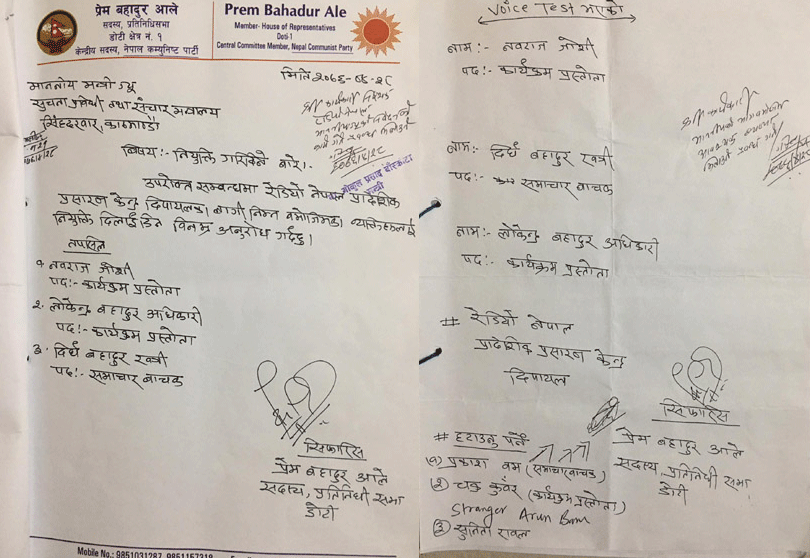 प्रेम बहादुर आले
सदस्य, प्रतिनिधिसभा
डोटी क्षेत्र नं. १
केन्द्रीय सदस्य, नेपाल कम्युनिष्ट पार्टी
Prem Bahadur Ale
Member- House of Representatives
Doti-1
Central Committee Member, Nepal Communist Party
मिति २०७६-०६-२८
माननीय मन्त्री ज्यू
सुचना प्रविधी तथा संचार मन्त्रालय
सिंहदरवार, काठमाडौं
बिषय:- नियुक्ति गरिदिने बारे।
उपरोक्त सम्बन्धमा रेडियो नेपाल प्रादेशिक
प्रसारण केन्द्र दिपायलका लागी निम्न बमोजिमका व्यक्तिहरुलाई
नियुक्ति दिलाईदिन विनम्र अनुरोध गर्दछु।
तपसिल
१. नवराज जोशी
पद:- कार्यक्रम प्रस्तोता
२. लोकेन्द्र बहादुर अधिकारी
पद:- कार्यक्रम प्रस्तोता
३. दिर्घ बहादुर खत्री
पद:- समाचार बाचक
सिफारिस
प्रेम बहादुर आले
सदस्य, प्रतिनिधी सभा
डोटी
Mobile No.: 9851031287, 9851157318
Voice Test भएको
नाम:- नवराज जोशी
पद:- कार्यक्रम प्रस्तोता
नाम:- दिर्घ बहादुर खत्री
पद:- समाचार वाचक
नाम:- लोकेन्द्र बहादुर अधिकारी
पद:- कार्यक्रम प्रस्तोता
# रेडियो नेपाल
प्रादेशिक प्रसारण केन्द्र
दिपायल
सिफारिस
प्रेम बहादुर आले
सदस्य, प्रतिनिधी सभा
डोटी
# हटाउनु पर्ने
(१) प्रकाश बम (समाचार वाचक)
(२) चक्र कुवँर (कार्यक्रम प्रस्तोता)
Stranger Arun Bam
(३) सुनिता रावल